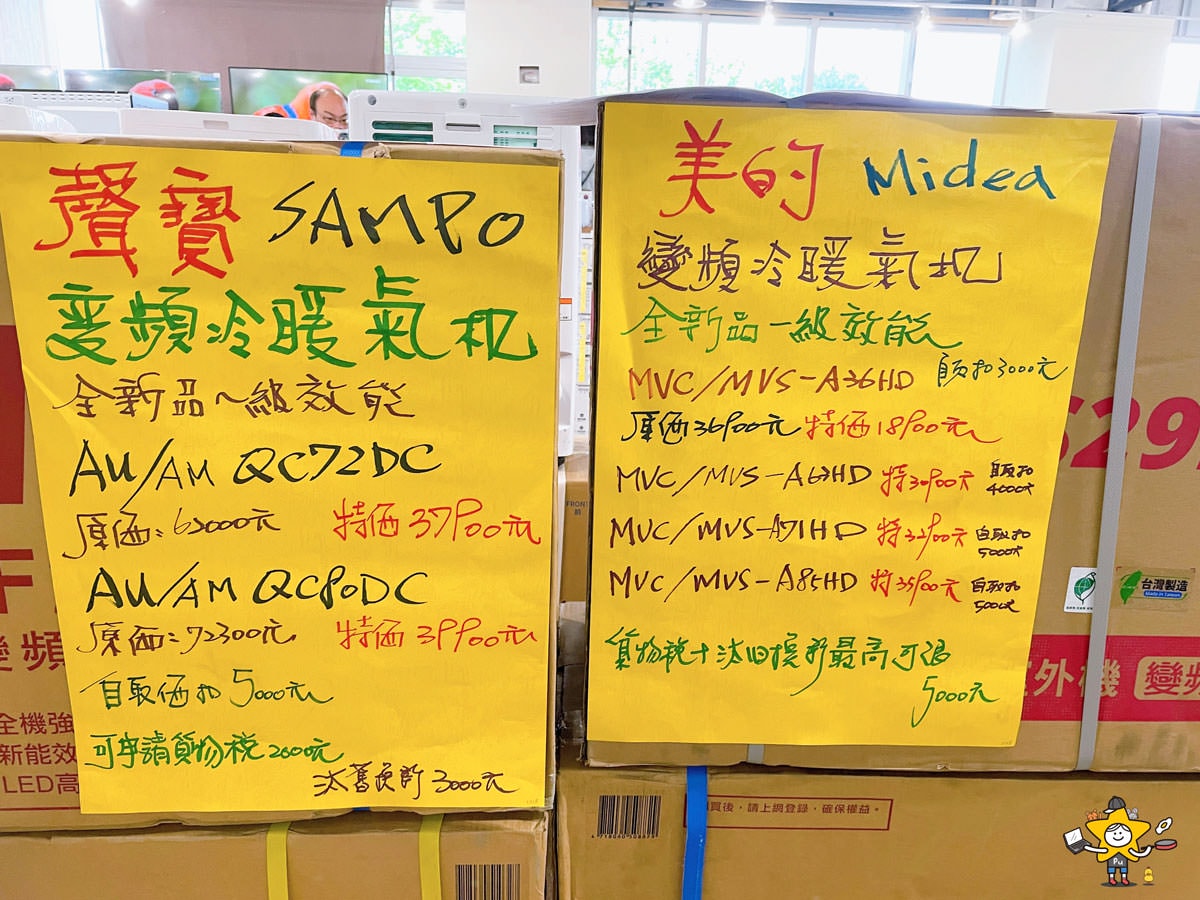 聲寶 SAMPO
変頻冷暖氣机
全新品一級效能
AU/AM QC72DC
原価:63000元 特価37900元
AU/AM QC80DC
原価:72300元 特価39900元
自取価扣5000元
可申請貨物稅2000元
汰舊換新3000元
美的 Midea
變頻冷暖氣机
全新品一級效能
MVC/MVS-A36HD 自取扣3000元
原価36900元 特価18900元
MVC/MVS-A63HD 特30900元 自取扣4000元
MVC/MVS-A71HD 特32900元 自取扣5000元
MVC/MVS-A85HD 特35900元 自取扣5000元
貨物稅+汰旧換新最高可退
5000元
變頻
全機強
新能效
LED高
FRONT
前
529
台灣製造
Made in Taiwan
外機 變頻
買後,請上網登錄,確保權益。
4718060508875
Pu